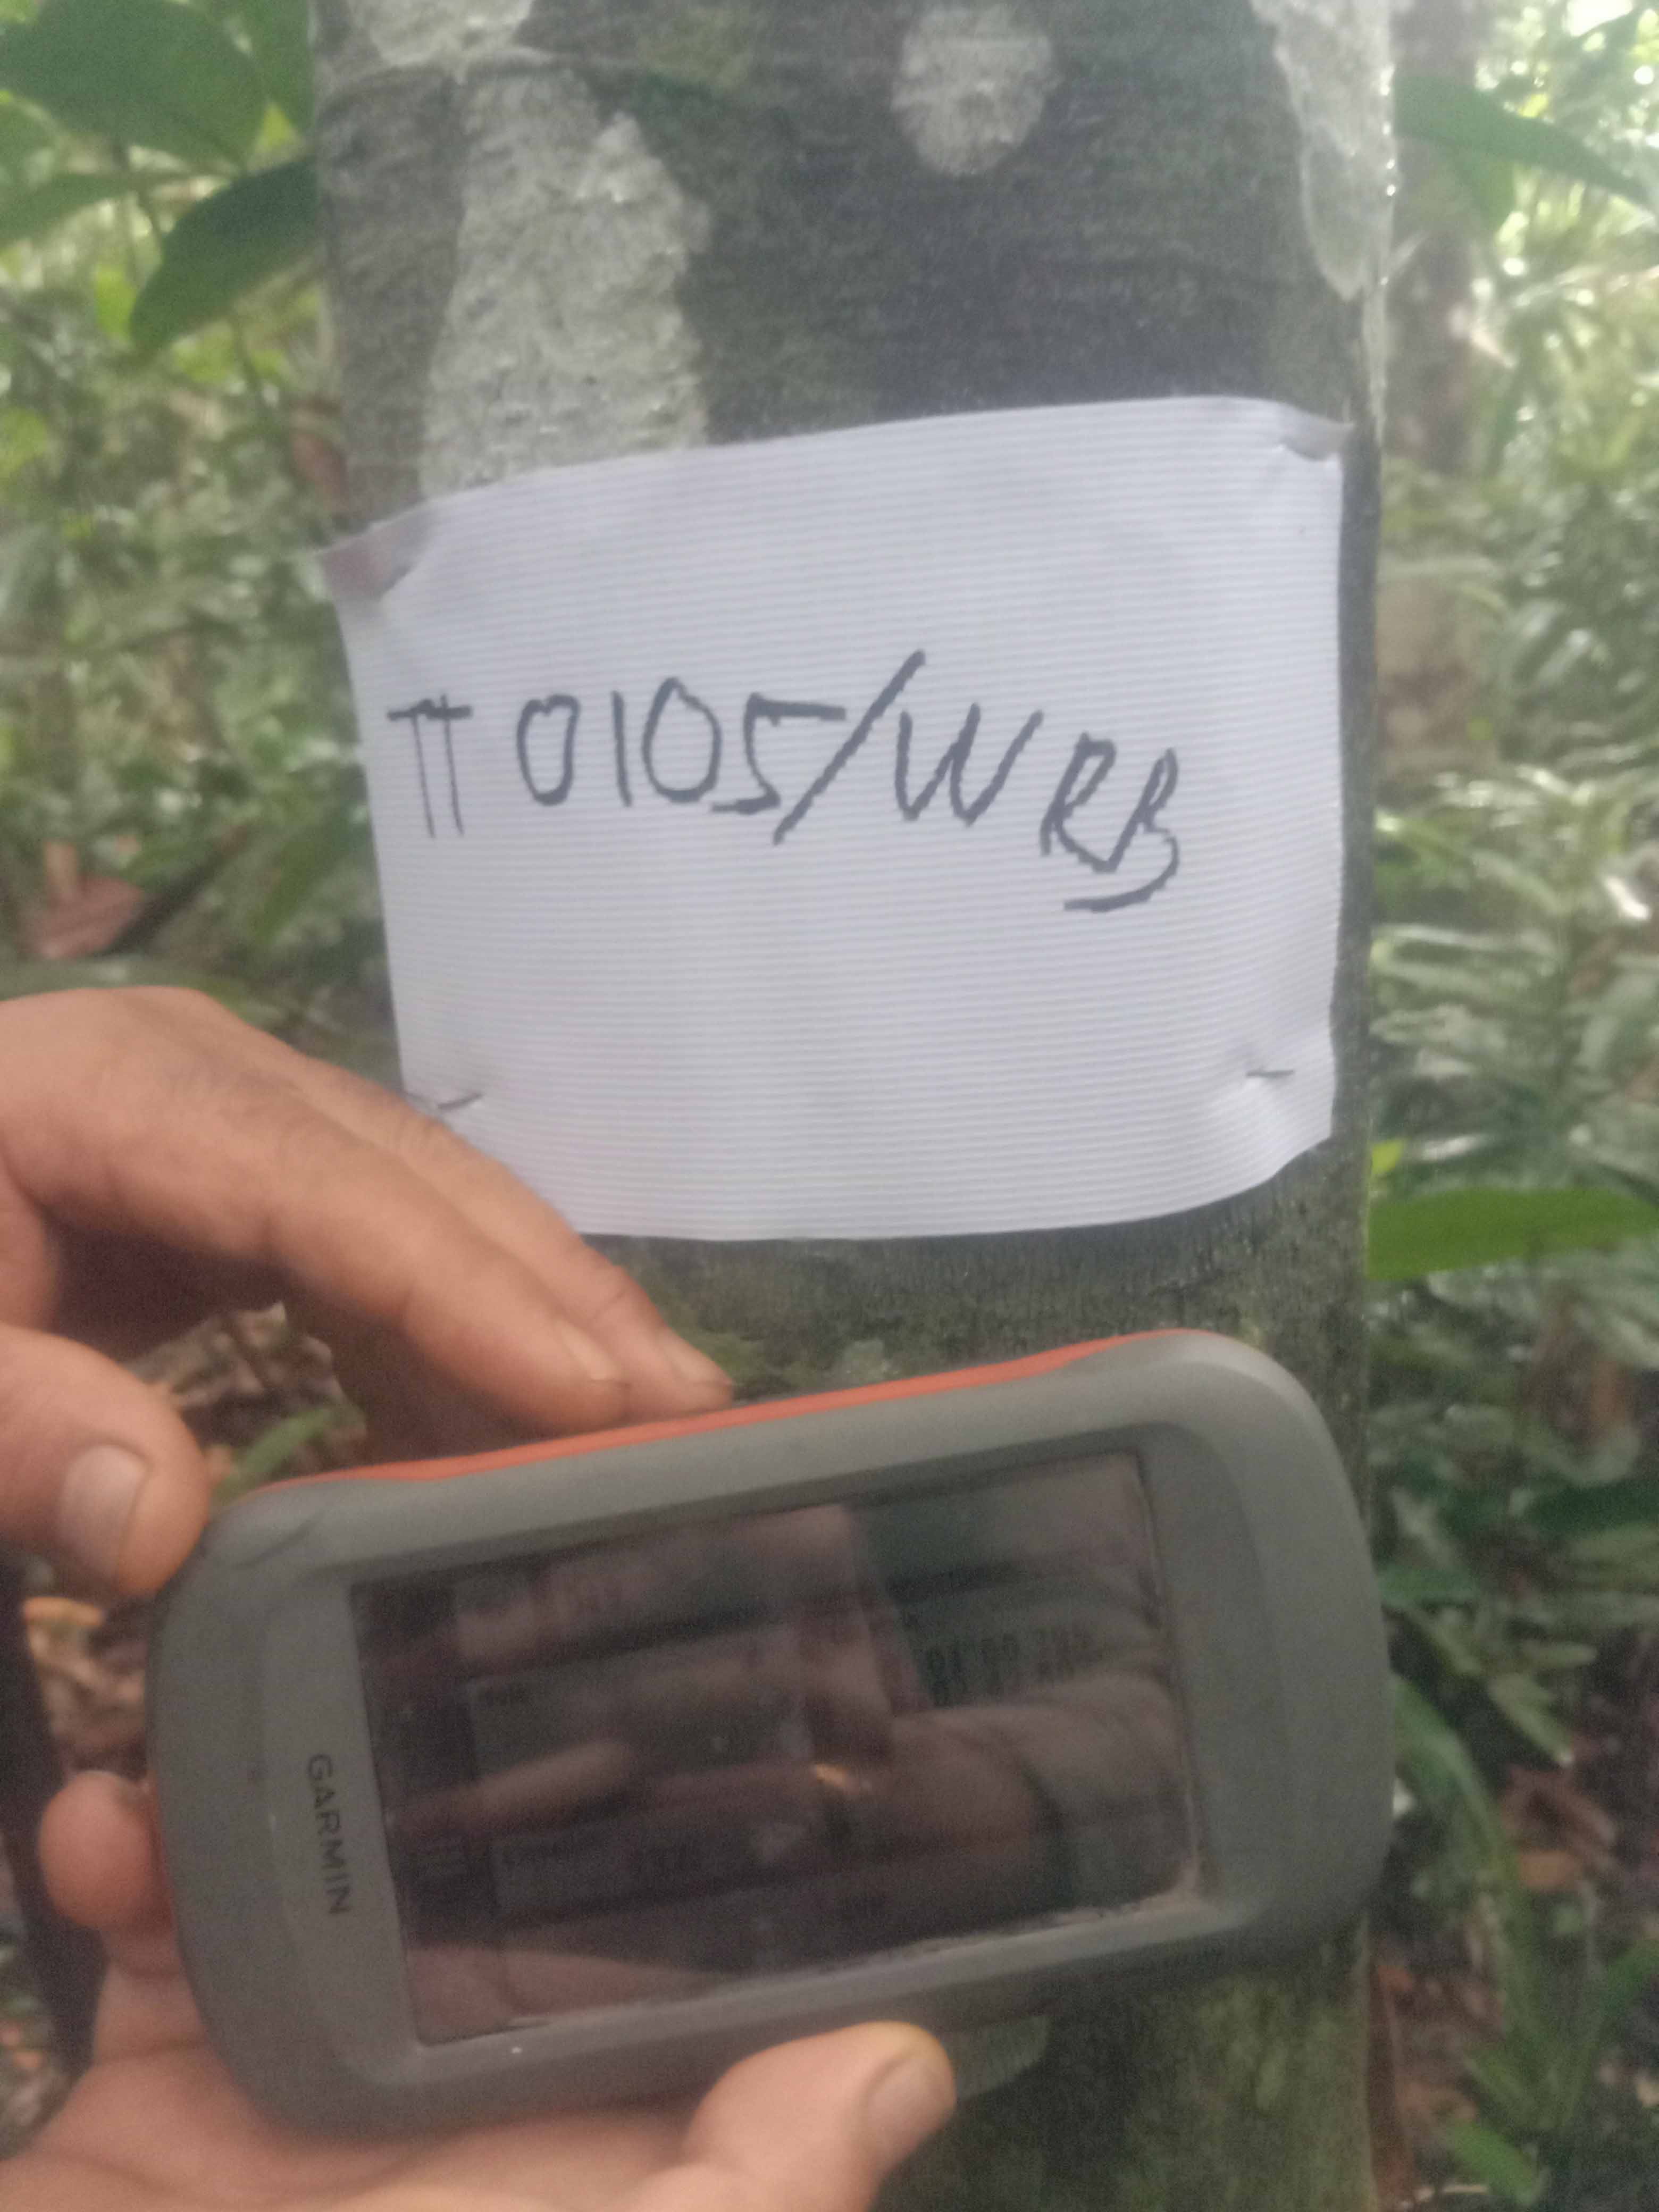 TT 0105/WRB
GARMIN